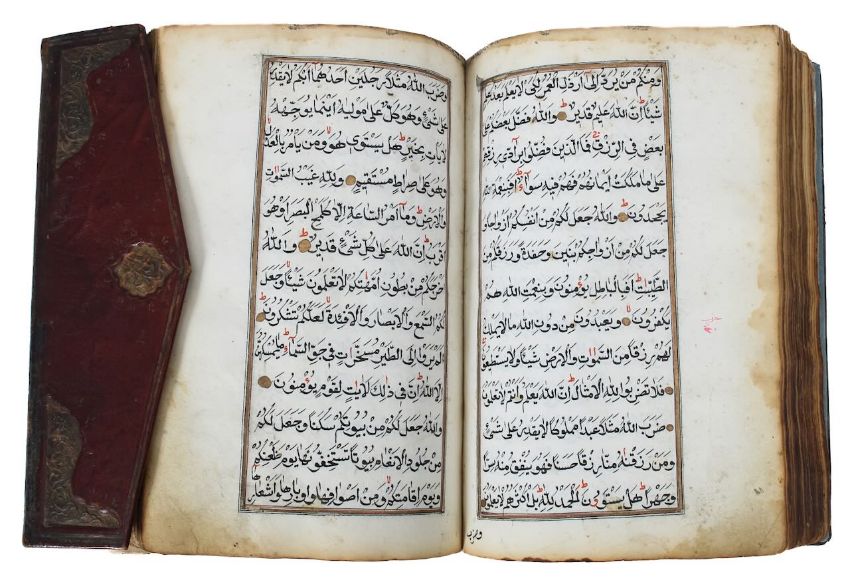 ومنكم من يرد الى ارذل العمر لكي لا يعلم بعد علم
شيئا ان الله عليم قدير والله فضل بعضكم على
بعض في الرزق فما الذين فضلوا برادي رزقهم
على ما ملكت ايمانهم فهم فيه سواء افبنعمة الله
يجحدون والله جعل لكم من انفسكم ازواجا و
جعل لكم من ازواجكم بنين وحفدة ورزقكم من
الطيبات افبالباطل يؤمنون وبنعمت الله هم
يكفرون ويعبدون من دون الله ما لا يملك
لهم رزقا من السموات والارض شيئا ولا يستطيعون
فلا تضربوا لله الامثال ان الله يعلم وانتم لا تعلمون
ضرب الله مثلا عبدا مملوكا لا يقدر على شئ
ومن رزقناه منا رزقا حسنا فهو ينفق منه سرا
وجهرا هل يستوون الحمد لله بل اكثرهم لا يعلمون
وضرب
وضرب الله مثلا رجلين احدهما ابكم لا يقدر
على شئ وهو كل على موليه اينما يوجهه
لا يات بخير هل يستوي هو ومن يامر بالعدل
وهو على صراط مستقيم ولله غيب السموات
والارض وما امر الساعة الا كلمح البصر او هو
اقرب ان الله على كل شئ قدير والله
اخرجكم من بطون امهتكم لا تعلمون شيئا وجعل
لكم السمع والابصار والافئدة لعلكم تشكرون
الم يروا الى الطير مسخرات في جو السماء ما يمسكهن
الا الله ان في ذلك لايات لقوم يؤمنون
والله جعل لكم من بيوتكم سكنا وجعل لكم
من جلود الانعام بيوتا تستخفونها يوم ظعنكم
ويوم اقامتكم ومن اصوافها واوبارها واشعارها